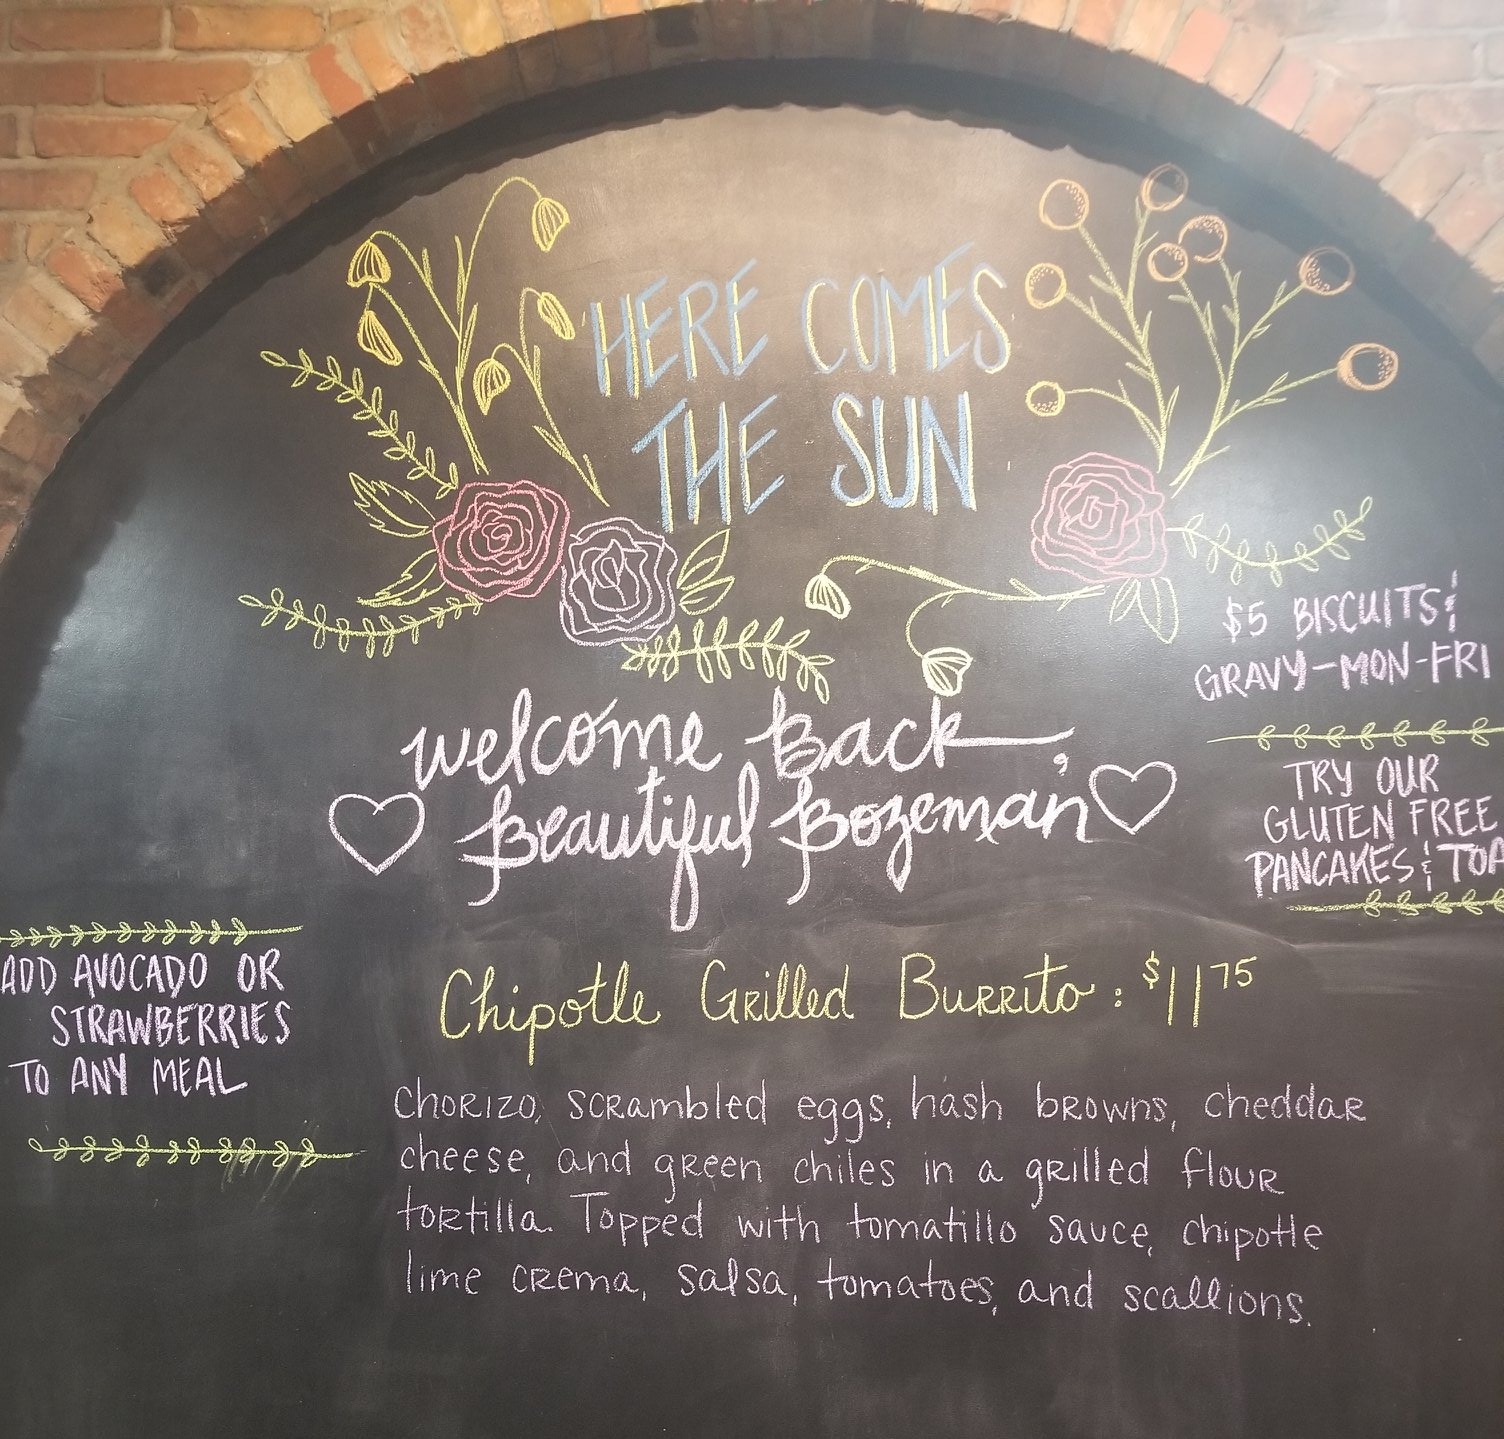 HERE COMES
THE SUN
$5 BISCUITS &
GRAVY-MON-FRI
welcome Back,
Beautiful Bozeman
TRY OUR
GLUTEN FREE
PANCAKES & TOA
ADD AVOCADO OR
STRAWBERRIES
TO ANY MEAL
Chipotle Grilled Burrito: $11 75
chorizo, scrambled eggs, hash browns, cheddar
cheese, and green chiles in a grilled flour
tortilla. Topped with tomatillo sauce, chipotle
lime crema, salsa, tomatoes, and scallions.